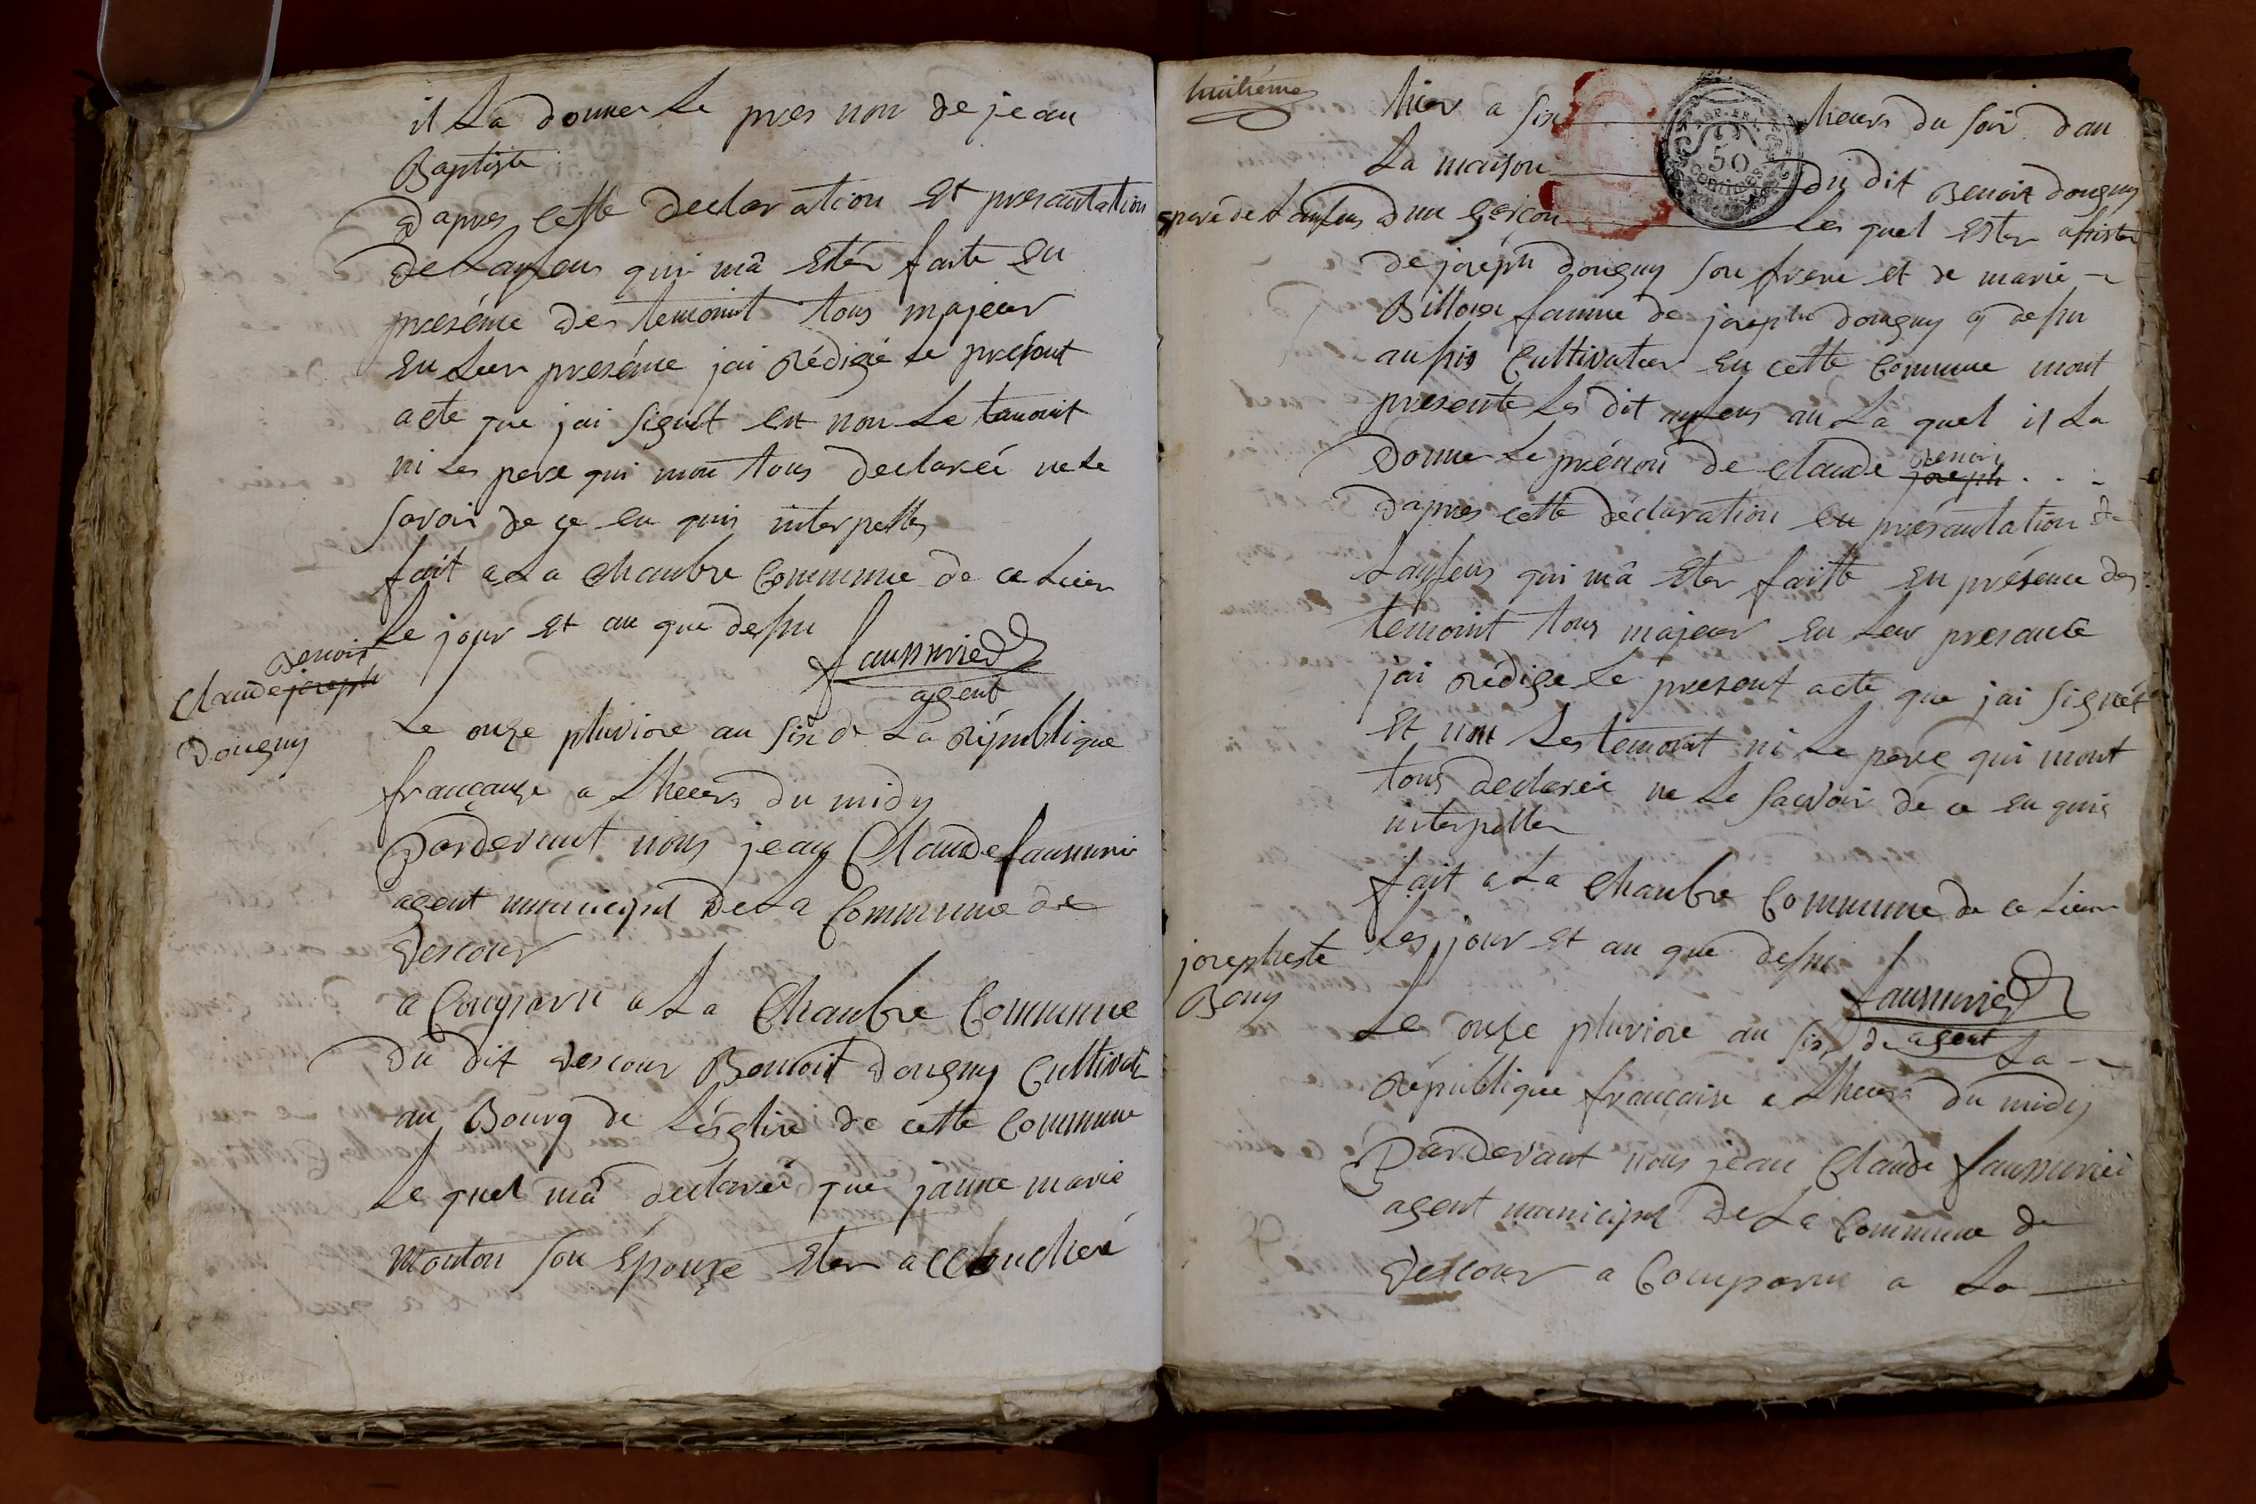 il La donner Le pres non de jean
Baptiste
Dapres cette declaration et presantation
de Lanfens qui mâ eter faite en
preséme des temoint tous majeur
en Leur preséme jai rédigé Le present
acte que jai Signét et non Le temoint
ni Les pere qui mon tous declareé ne Le
Savoir de ce en quis interpelles
fait a La Chambre Commune de ce Lieu
Le jour et an que dessu
faussurier
agent
Benoit
Claude joseph
Dougny
Le onze pluviose an Six de La république
françauze a Lheurs du midy
Pardevant nous jean Claude faussurier
agent municipal de La Commune de
Vescour
a Comparu a La Chambre Commune
du dit Vescour Benoit Dougny Cultivat
au Bourg de Lésglise de cette Commune
Le quel mâ declareé que janne marie
Monton Son Épouze eter acchouchée
huitiéme
hier a Six heurs du Soir dan
La maison du dit Benoit Dougny
pere de Lanfens dun Gerçon Les quel Eter assister
de joséph Dougny Son frere et de marie
Billoux famme de joseph Dougny dessu
aussis Cultivateur en cette Commune mont
presente Les dit enfens au La quel il La
Donner Le prénon de Claude Benoit joseph
Dapres cette déclaration en présantation de
Lanfens qui mâ Eter faitte en présence des
temoint tous majeur en Leur presance
jai rédige Le present acte que jai Signét
et non Les temoint ni Le pere qui mont
tous declareé ne Le Savoir de ce en quis
interpeller
fait a La Chambre Commune de ce Lieu
Les jour et an que dessu
faussurier
agent
josepheste
Bony
Le onze pluviose an Six de La
république françaize a Lheurs du midy
Pardevant nous jean Claude faussurier
agent municipal de La Commune de
Vescour a Comparu a La
50